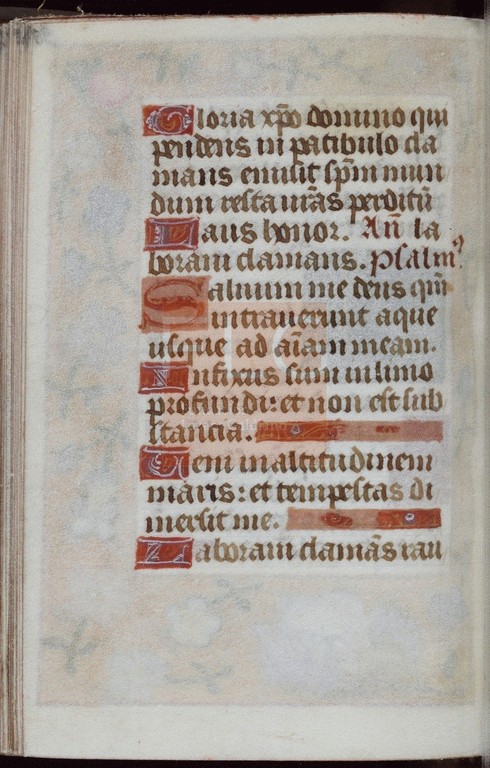 Gloria xp̄o domino qui
pendens in patibulo cla
mans emisit sp̄m mun
dum restaurās perditū
Laus honor. Añ la
boravi clamans. psalm⁹.
Salvum me deus qm̄
intraverunt aque
usque ad aīam meam.
Infixus sum in limo
profundi: et non est sub
stancia.
Veni in altitudinem
maris: et tempestas di
mersit me.
Laboravi clamās rau